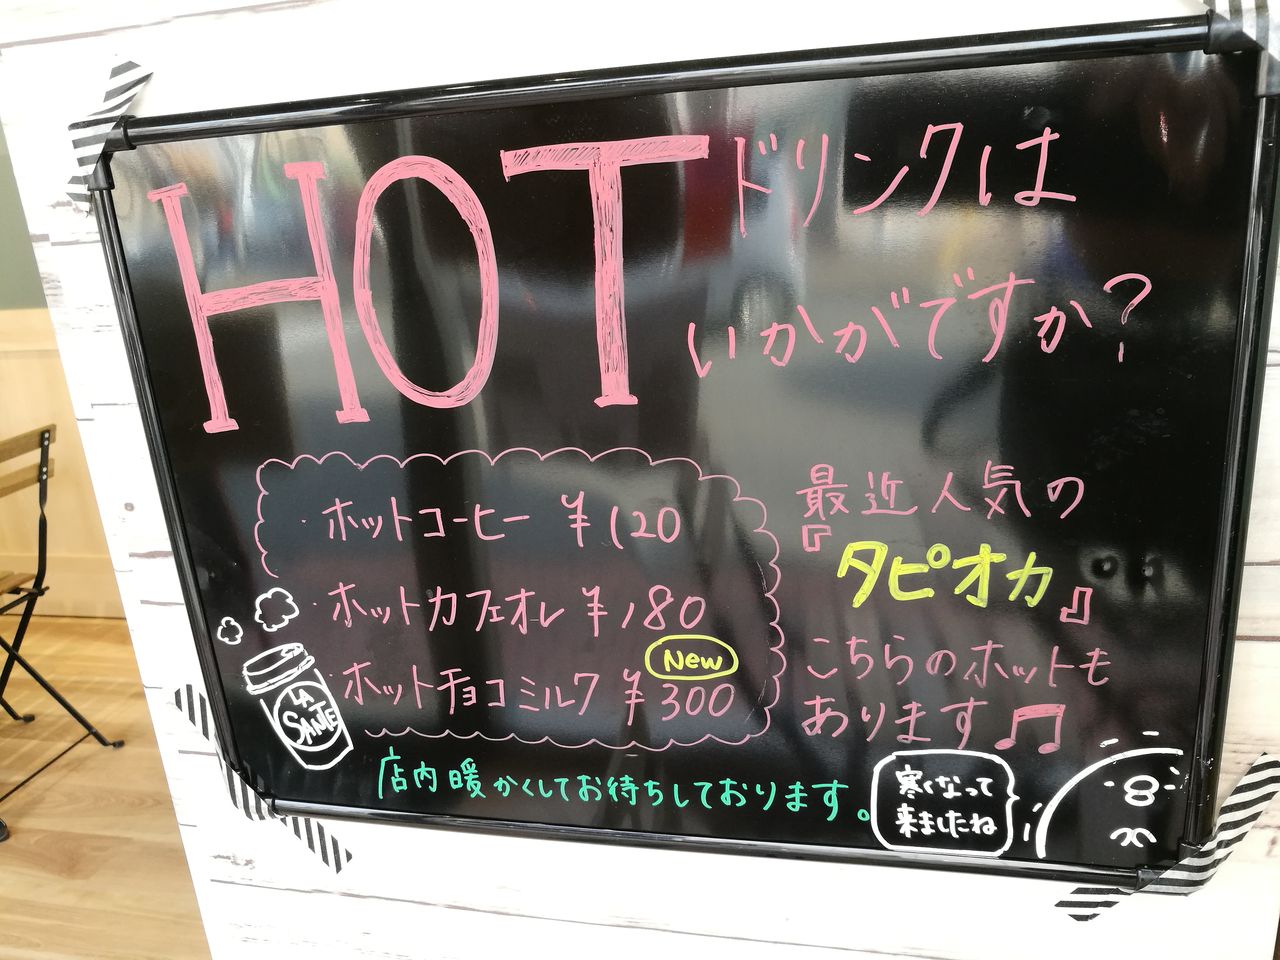 HOTドリンクは
いかがですか?
・ホットコーヒー ¥120
・ホットカフェオレ ¥180
New
・ホットチョコミルク ¥300
最近人気の
『タピオカ』
こちらのホットも
あります♫
LA
SANTE
店内暖かくしてお待ちしております。
寒くなって
来ましたね